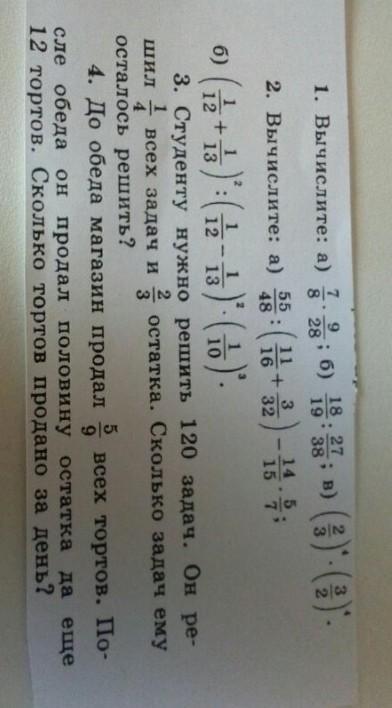 1. Вычислите: а) 7/8 · 9/28; б) 18/19 : 27/38; в) (2/3)⁴ · (3/2)⁴.
2. Вычислите: а) 55/48 : (11/16 + 3/32) − 14/15 · 5/7;
б) (1/12 + 1/13)² : (1/12 − 1/13)² · (1/10)³.
3. Студенту нужно решить 120 задач. Он ре-
шил 1/4 всех задач и 2/3 остатка. Сколько задач ему
осталось решить?
4. До обеда магазин продал 5/9 всех тортов. По-
сле обеда он продал половину остатка да еще
12 тортов. Сколько тортов продано за день?